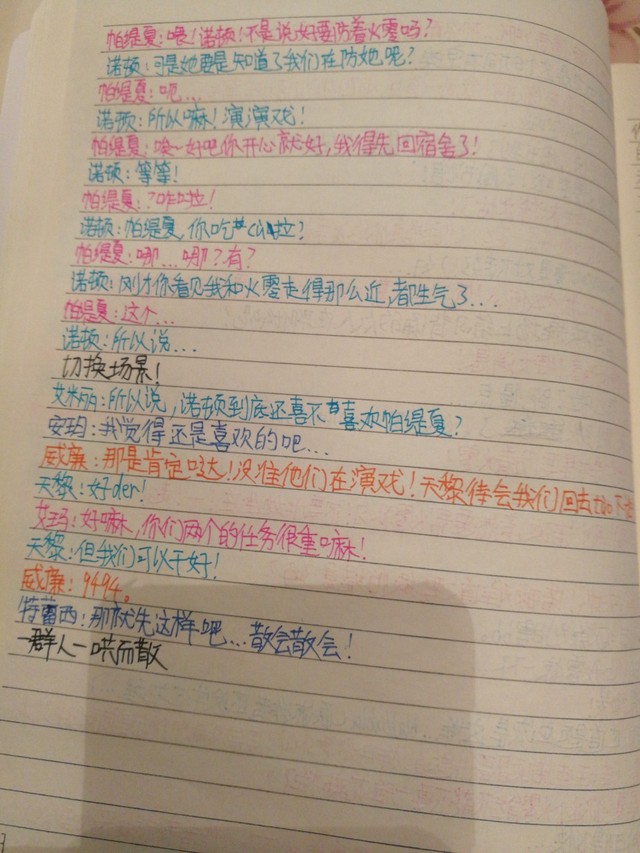 帕缇夏：喂！诺顿！不是说好要防着火零吗？
诺顿：可是她要是知道了我们在防她呢？
帕缇夏：呃...
诺顿：所以嘛！演演戏！
帕缇夏：唉~好吧你开心就好，我得先回宿舍了！
诺顿：等等！
帕缇夏：？咋啦！
诺顿：帕缇夏，你吃醋啦？
帕缇夏：哪...哪？有？
诺顿：刚才你看见我和火零走得那么近，都生气了...
帕缇夏：这个...
诺顿：所以说...
切换场景！
艾米丽：所以说，诺顿到底还喜不喜欢帕缇夏？
安玛：我觉得还是喜欢的吧...
威廉：那是肯定哒！没准他们在演戏！天黎待会我们回去
天黎：好der！
艾玛：好嘛，你们两个的任务很重嘛！
天黎：但我们可以干好！
威廉：9494。
特蕾西：那就先这样吧...散会散会！
一群人一哄而散